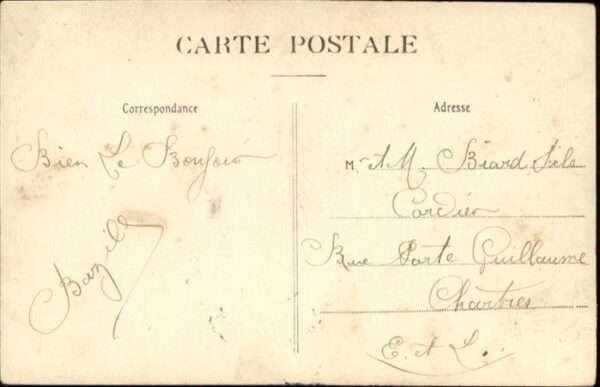 CARTE POSTALE
Correspondance
Adresse
Bien Le Bonjour
Bazille
M. et M. Biard Fils
Cordier
Rue Porte Guillaume
Chartres
E. et L.